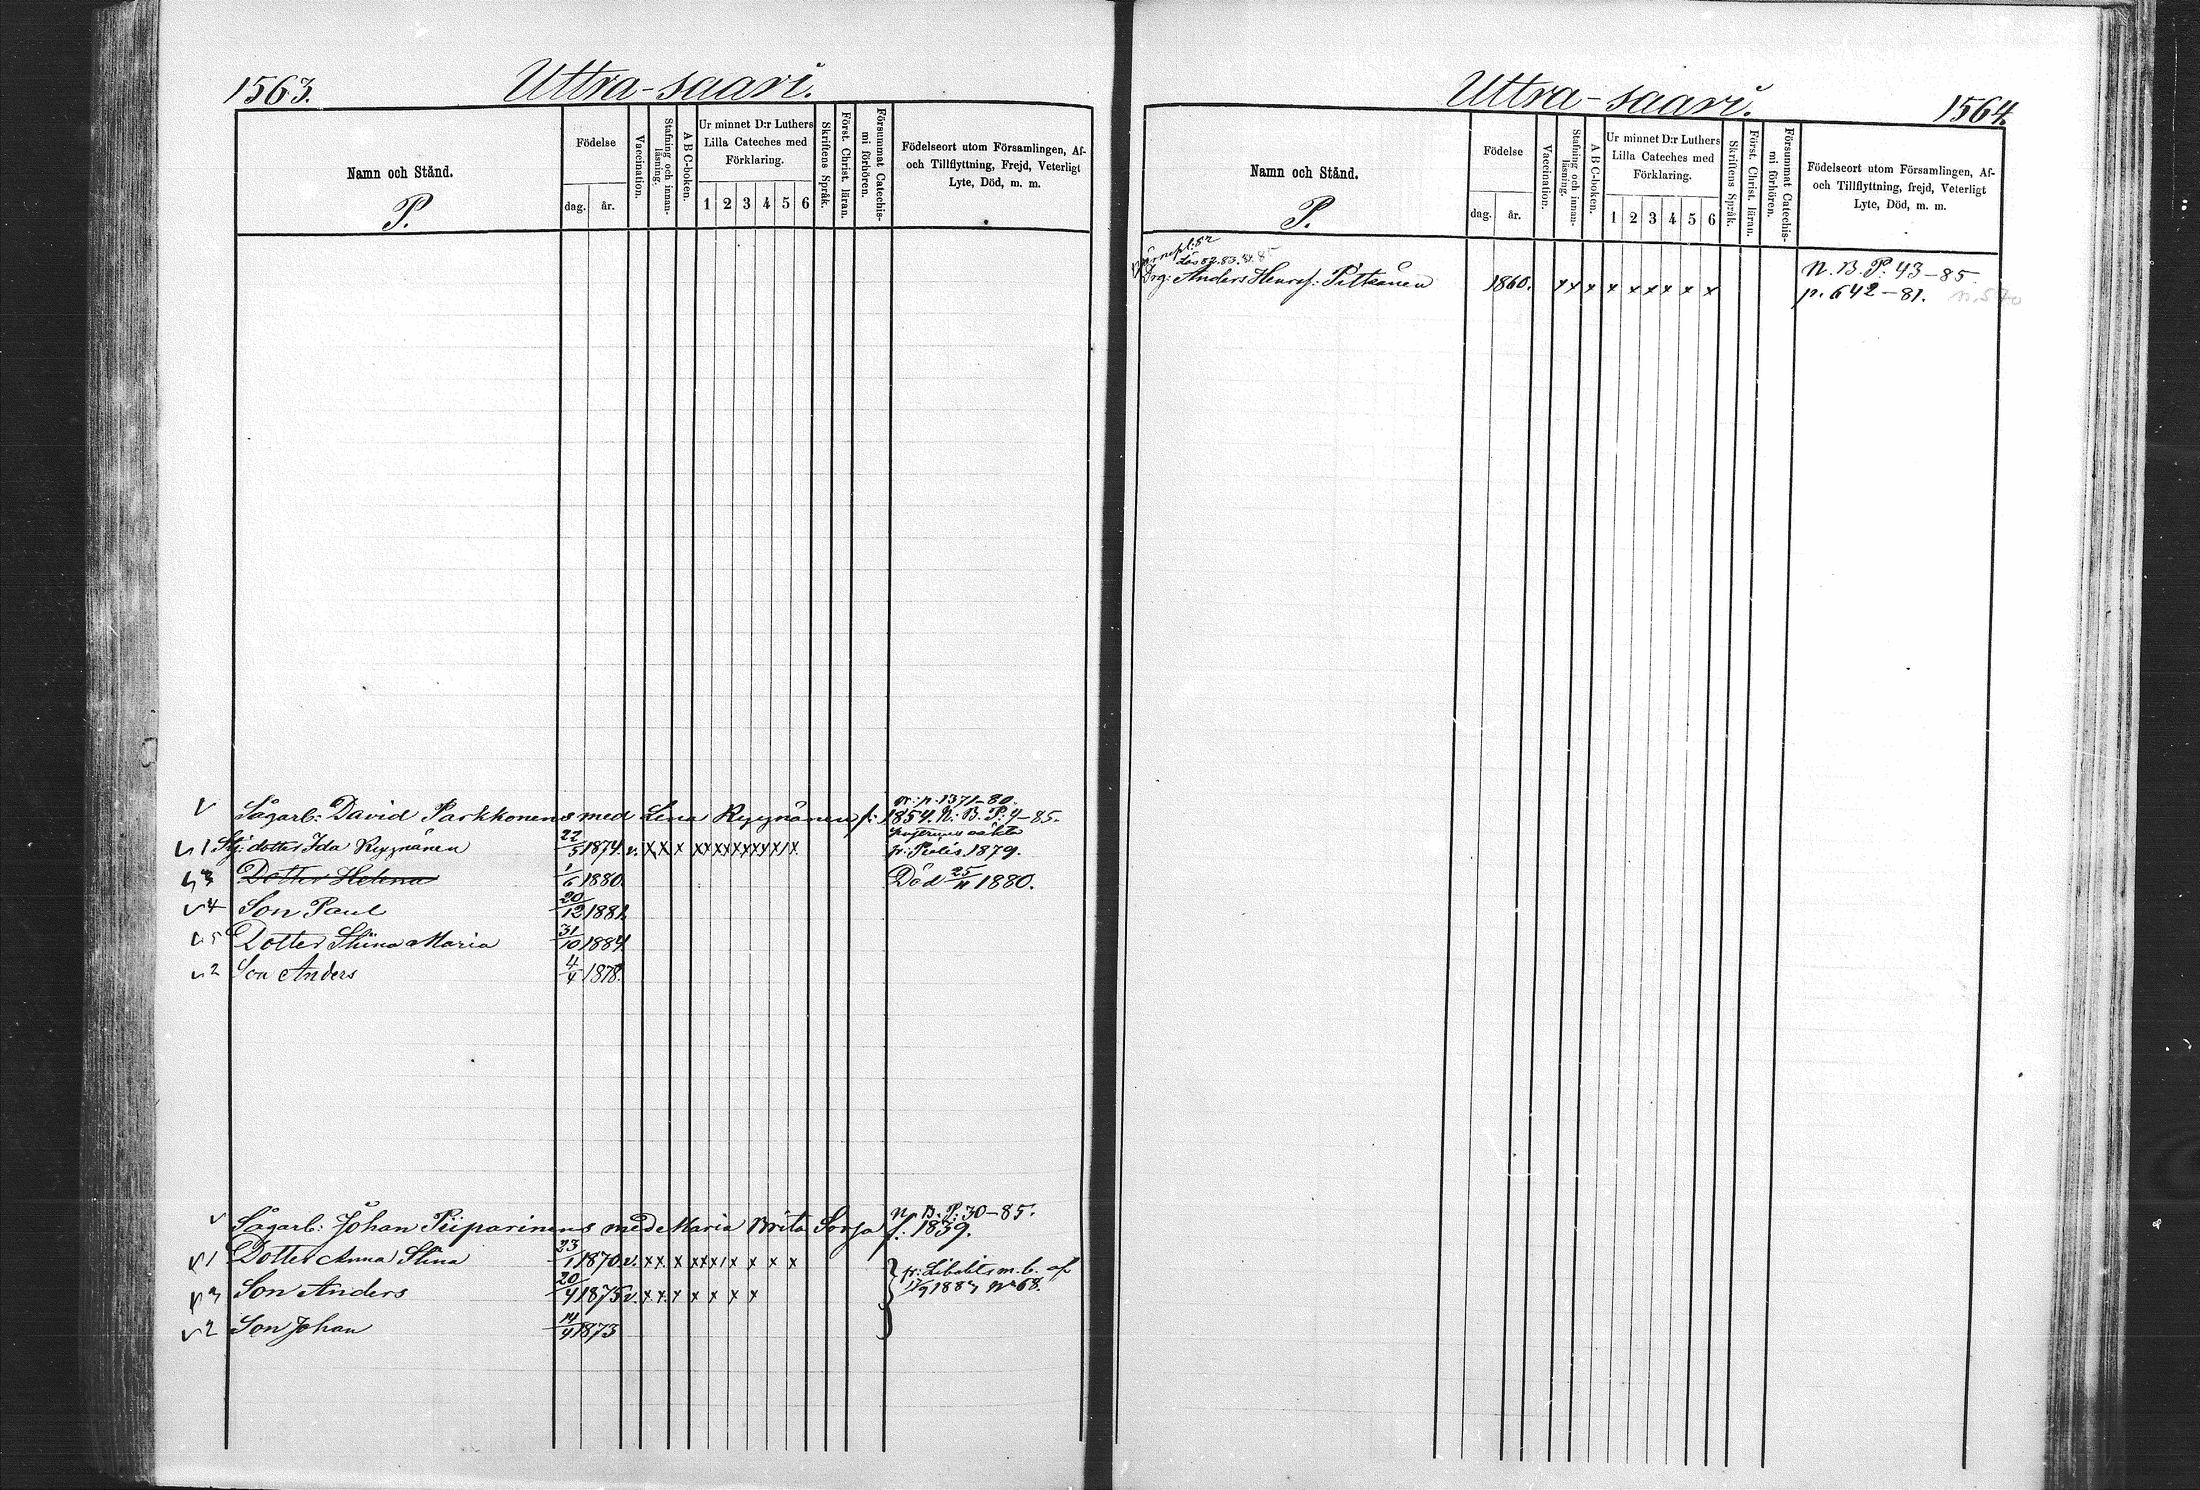 1563.
Uttra-saari.
Namn och Stånd.
P.
Födelse
dag. år.
Vaccination.
Stafning och innan-
läsning.
A B C-boken.
Ur minnet D:r Luthers
Lilla Cateches med
Förklaring.
1 2 3 4 5 6
Skriftens Språk.
Först. Christ. läran.
Försummat Catechis-
mi förhören.
Födelseort utom Församlingen, Af-
och Tillflyttning, Frejd, Veterligt
Lyte, Död, m. m.
fr: p. 1371-80.
Sågarb: David Parkkonens med Lena Ryynänen f: 1854. N. B. P: 4-85.
1 Stj: dotter Ida Ryynänen 22/5 1874. v. x x x x x x x x x x x x fr: Pielis 1879.
3 Dotter Helena 1/6 1880. Död 25/11 1880.
4 Son Paul 20/12 1881.
5 Dotter Stina Maria 31/10 1884
2 Son Anders 4/4 1878.
N. B. P: 30-85.
Sågarb: Johan Piiparinens med Maria Brita Sorsa f: 1839.
1 Dotter Anna Stina 23/1 1870 v. x x x x x x x x x x x
fr: Libelits m. b. af
3 Son Anders 20/4 1875 v. x x x x x x x
1887 No 68.
2 Son Johan 1873
Uttra-saari.
1564.
Namn och Stånd.
P.
Födelse
dag. år.
Vaccination.
Stafning och innan-
läsning.
A B C-boken.
Ur minnet D:r Luthers
Lilla Cateches med
Förklaring.
1 2 3 4 5 6
Skriftens Språk.
Först. Christ. läran.
Försummat Catechis-
mi förhören.
Födelseort utom Församlingen, Af-
och Tillflyttning, frejd, Veterligt
Lyte, Död, m. m.
N. B. P: 43-85
Drg: Anders Henrsf: Pitkänen 1860. x x x x x x x x x
p. 642-81.